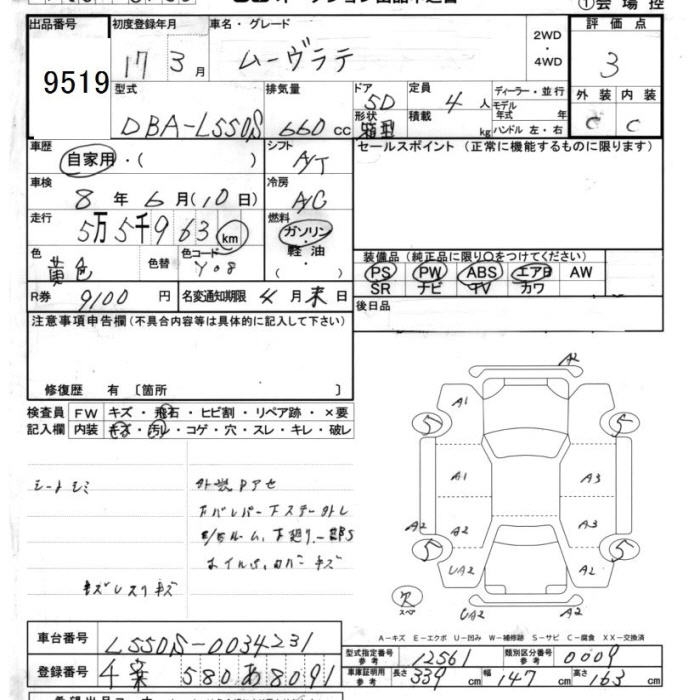 ①会場控
出品番号 初度登録年月 車名・グレード 2WD ・ 4WD 評価点
9519 17 3月 ムーヴラテ 3
型式 排気量 ドア 定員 ディーラー・並行 外装 内装
DBA-L550S 660cc 5D 4人 モデル年式 年 C C
形状 箱型 積載 kg ハンドル 左・右
車歴 シフト セールスポイント(正常に機能するものに限ります)
自家用・( ) A/T
車検 冷房
8年6月(10日) A/C
走行 燃料
5万5千963km ガソリン・軽油・( )
色 黄色 色替 色コード Y08
装備品(純正品に限り○をつけてください)
PS PW ABS エアB AW
SR ナビ TV カワ
R券 9100円 名変通知期限 4月末日 後日品
注意事項申告欄(不具合内容等は具体的に記入して下さい)
修復歴 有 〔箇所 〕
検査員 FW キズ・飛石・ヒビ割・リペア跡・×要
記入欄 内装 キズ・汚レ・コゲ・穴・スレ・キレ・破レ
シートシミ
キズレスリキズ
A2
A1
5 5
A1 A3
A2 A2 A3
5 5
UA2 A2
欠 スペア UA2 A2
A-キズ E-エクボ U-凹み W-補修跡 S-サビ C-腐食 XX-交換済
車台番号 L550S-0034231
型式指定番号 参考 12561 類別区分番号 参考 0009
登録番号 千葉 580あ8091
車庫証明用 参考 長さ 339cm 幅 147cm 高さ 163cm